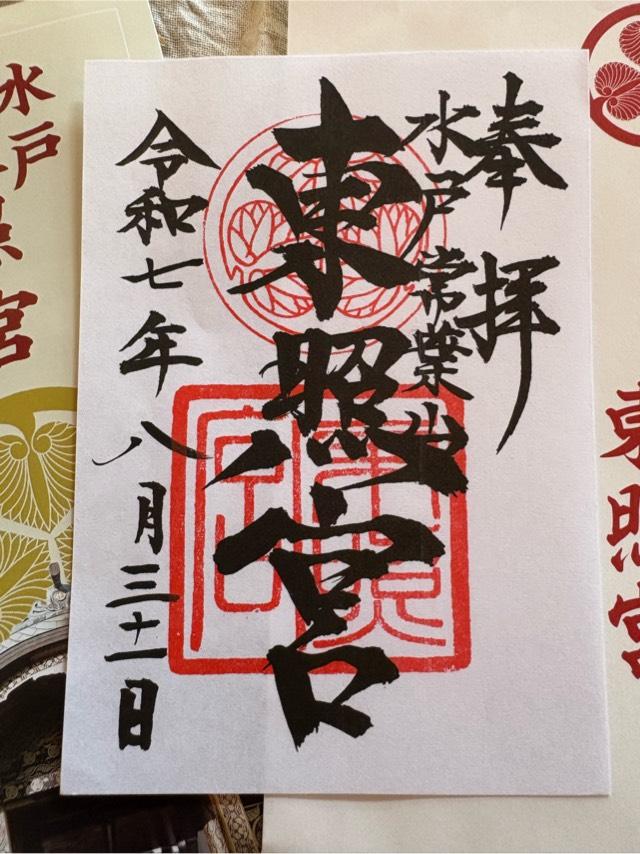 奉拝
水戸常葉山
東照宮
令和七年八月三十一日
水戸
宮
東照宮